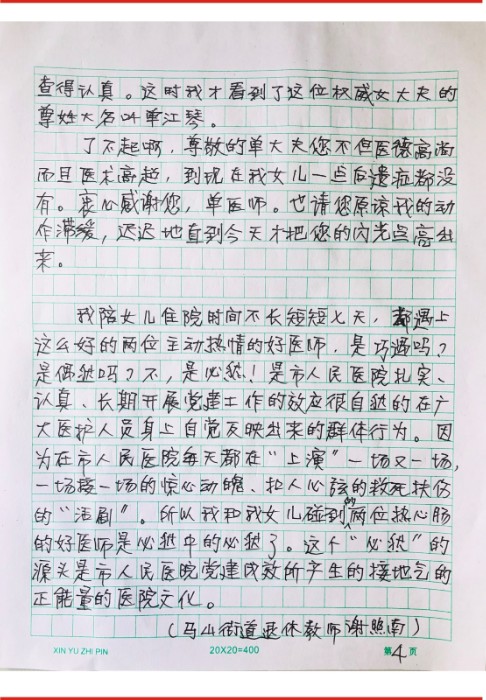 查得认真。这时我才看到了这位权威女大夫的
尊姓大名叫单江琴。
了不起啊，尊敬的单大夫您不但医德高尚
而且医术高超，到现在我女儿一点后遗症都没
有。衷心感谢您，单医师。也请您原谅我的动
作滞缓，迟迟地直到今天才把您的闪光点亮出
来。
我陪女儿住院时间不长短短七天，都遇上
这么好的两位主动热情的好医师，是巧遇吗？
是偶然吗？不，是必然！是市人民医院扎实、
认真、长期开展党建工作的效应很自然的在广
大医护人员身上自觉反映出来的群体行为。因
为在市人民医院每天都在“上演”一场又一场，
一场接一场的惊心动魄、扣人心弦的救死扶伤
的“活剧”。所以我和我女儿碰到的两位热心肠
的好医师是必然中的必然了。这个“必然”的
源头是市人民医院党建成效所产生的接地气的
正能量的医院文化。
（马山街道退休教师谢照南）
XIN YU ZHI PIN 20X20=400 第4页